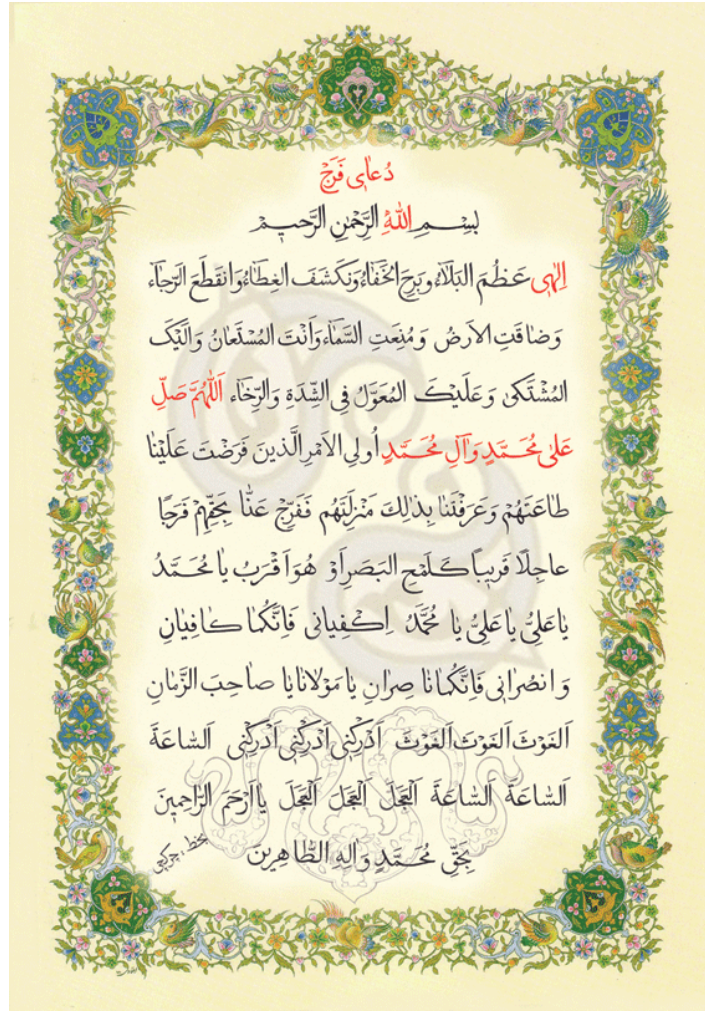 دُعایِ فَرَج
بِسْمِ اللهِ الرَّحْمٰنِ الرَّحیمْ
اِلٰهی عَظُمَ البَلاٰءُ وبَرِحَ الخَفٰاءُ وَنکَشَفَ الغِطٰاءُ وَانقَطَعَ الرَّجٰاء
وَضاقَتِ الاَرضُ وَمُنِعَتِ السَّمٰاء وَاَنْتَ المُسْتَعٰانُ وَالَیْکَ
المُشْتَکیٰ وَعَلَیْکَ المُعَوَّلُ فِی الشِّدَةِ وَالرَّخٰاء اَللّٰهُمَّ صَلِّ
عَلیٰ مُحَمَّدٍ وَآلِ مُحَمَّدٍ اُولِی الاَمْرِ الَّذینَ فَرَضْتَ عَلَیْنٰا
طاعَتَهُمْ وَعَرَفْتَنٰا بِذٰلِکَ مَنْزِلَتَهُم فَفَرِّجْ عَنّٰا بِحَقِّهِمْ فَرَجًا
عاجِلًا قَریبًا کَلَمْحِ البَصَرِ اَوْ هُوَ اَقْرَبُ یٰا مُحَمَّدُ
یٰاعَلیُّ یٰاعَلیُّ یٰا مُحَمَّدُ اِکْفِیانی فَاِنَّکُمٰا کٰافِیٰانِ
وَانصُرٰانی فَاِنَّکُمٰا نٰاصِرٰانِ یٰا مَوْلانٰا یٰا صٰاحِبَ الزَّمٰانِ
اَلغَوْثَ اَلغَوْثَ اَلغَوْثَ اَدْرِکْنی اَدْرِکْنی اَدْرِکْنی اَلسّٰاعَةَ
اَلسّٰاعَةَ اَلسّٰاعَةَ اَلْعَجَلَ اَلْعَجَلَ اَلْعَجَلَ یٰا اَرْحَمَ الرّٰاحِمینَ
بِحَقِّ مُحَمَّدٍ وَآلِهِ الطّٰاهِرینَ